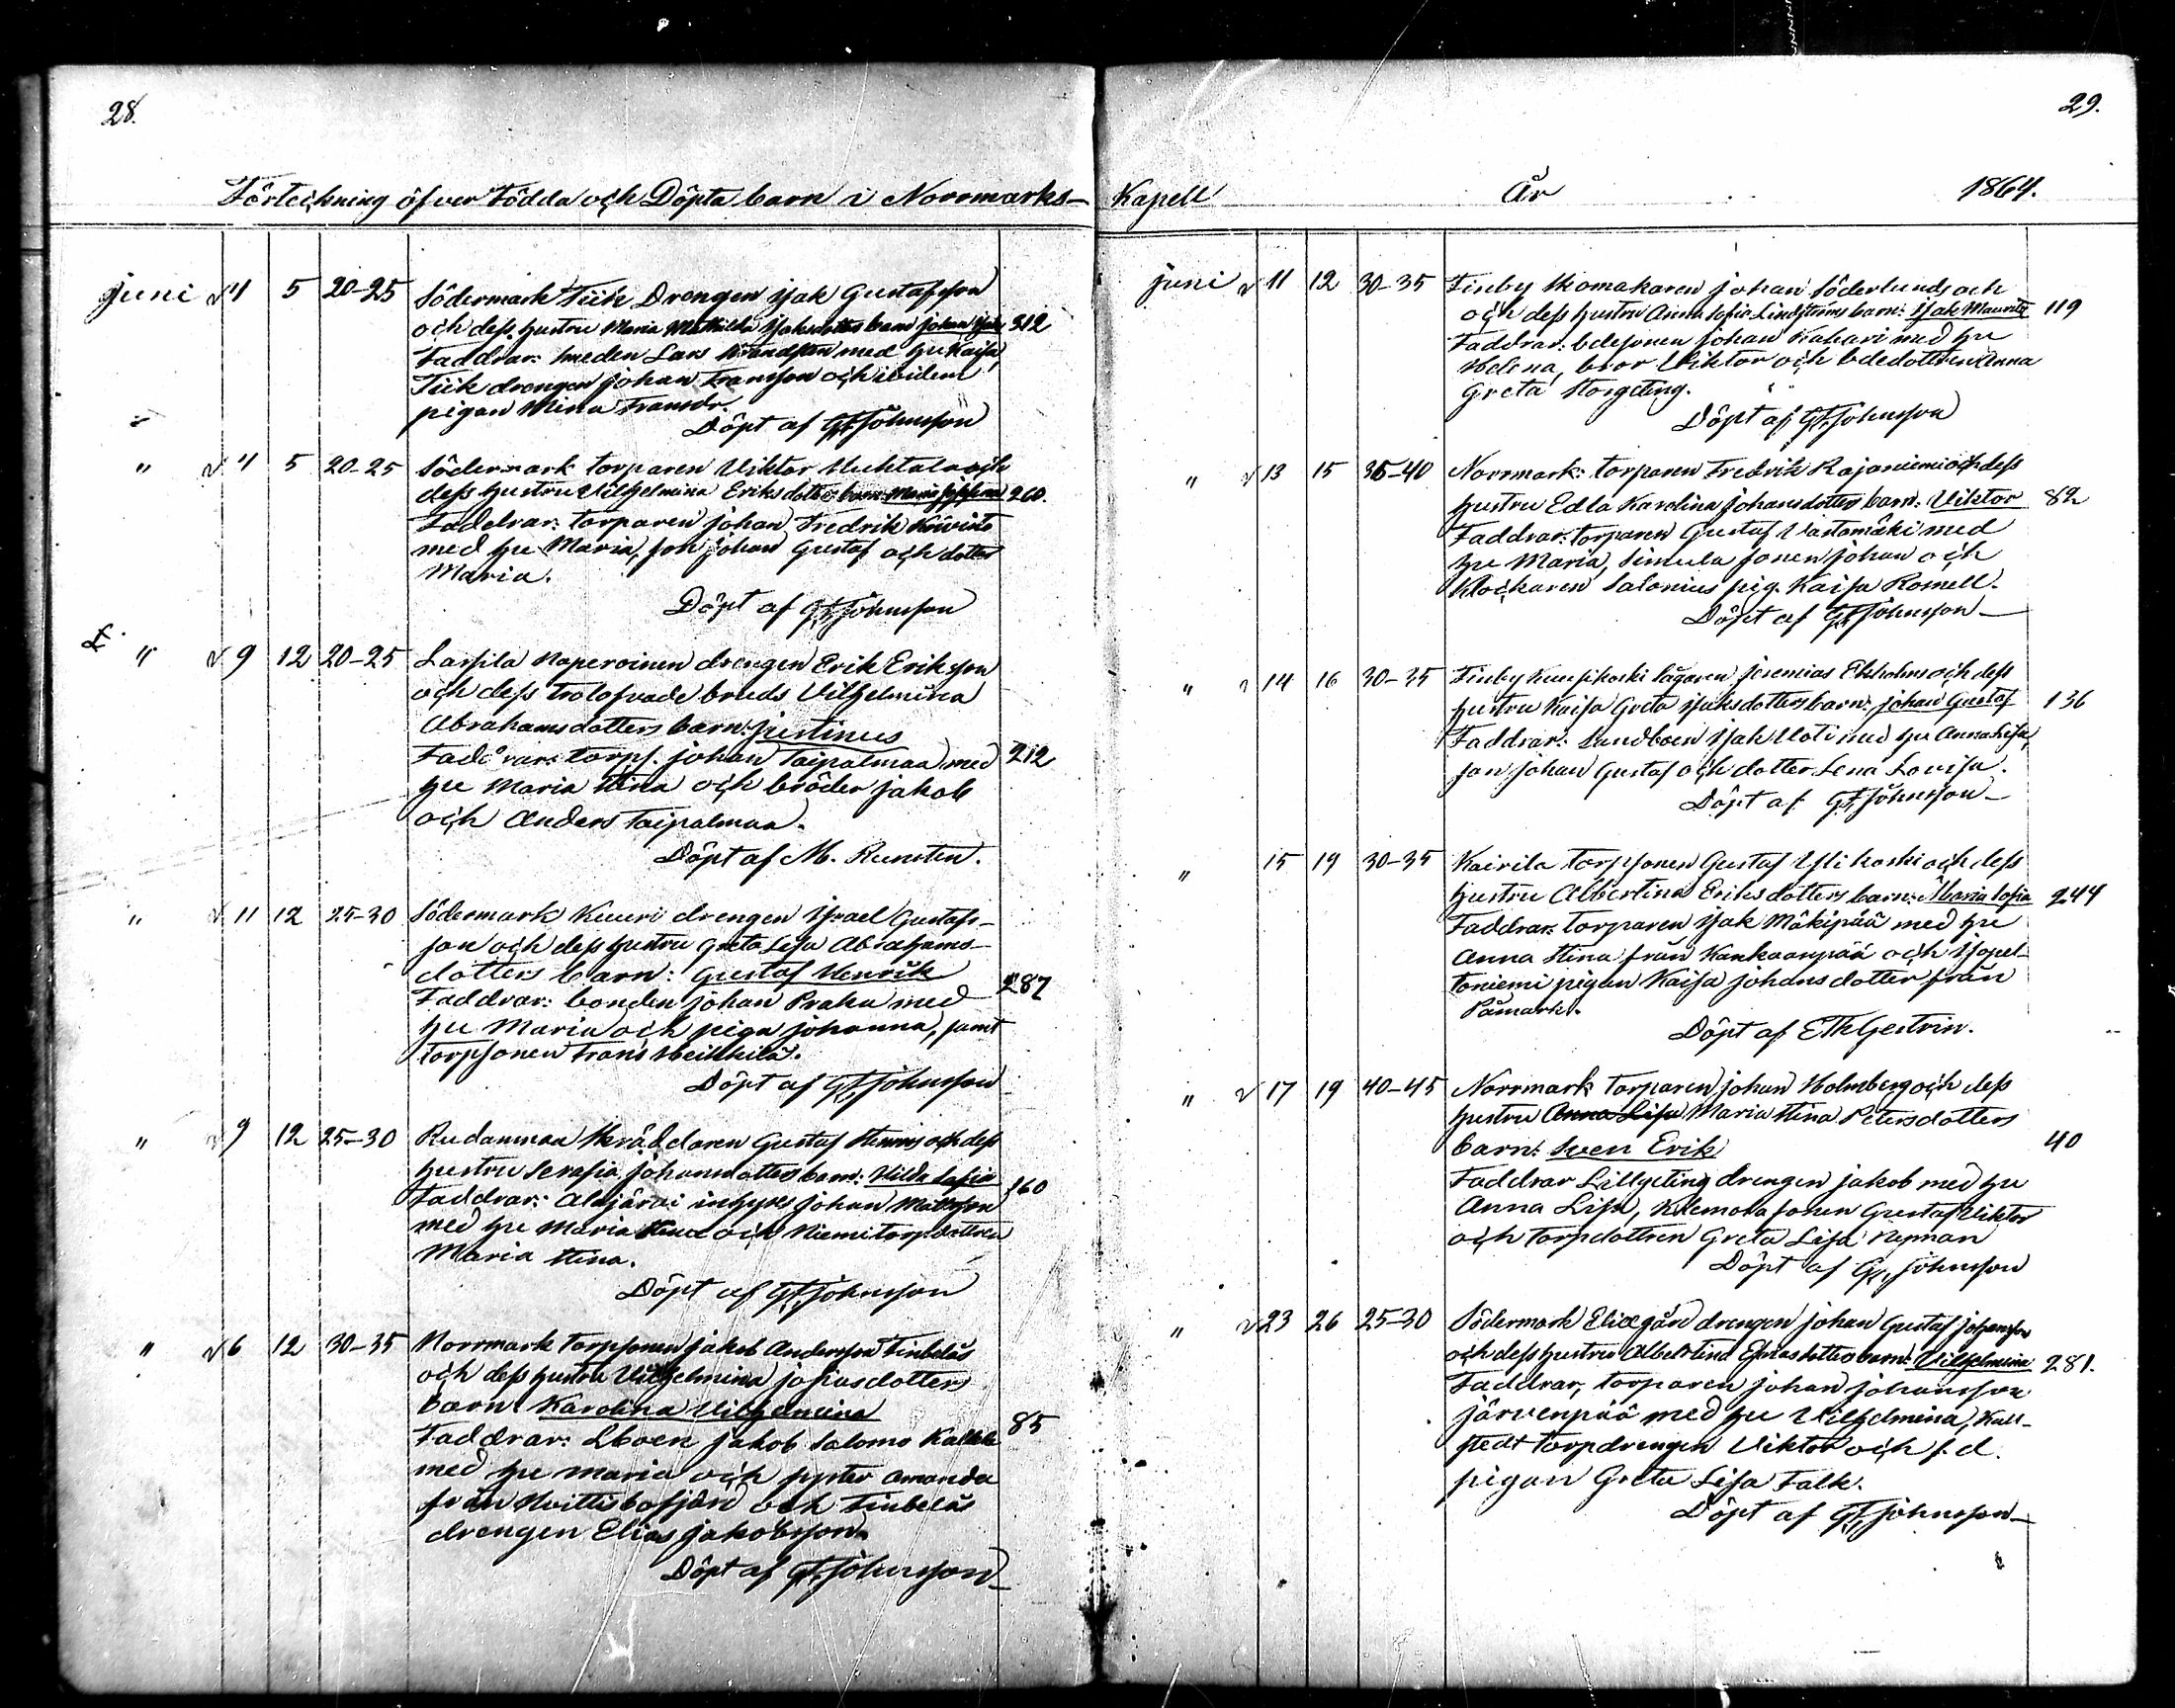 28.
Förteckning öfver Födda och Döpta barn i Norrmarks-
juni 4 5 20-25 Södermark Tiik Drengen Isak Gustafsson
och dess hustru Maria Mathilda Isaksdotters barn Johan 312
Faddrar: smeden Lars Strandsten med hu Kaisa,
Tiik drengen Johan Fransson och ibidem
pigan Mina Fransdr.
Döpt af G F Johnsson
" 4 5 20-25 Södermark torparen Viktor Huhtala och
dess hustru Vilhelmina Eriksdotters barn Maria Josefina 260.
Faddrar: torparen Johan Fredrik Kivistö
med hu Maria, son Johan Gustaf och dotter
Maria.
Döpt af G F Johnsson
" 9 12 20-25 Lassila Naperoinen drengen Erik Eriksson
och dess trolofvade bruds Vilhelmina
Abrahamsdotters barn: Justinus
Faddrar: torps. Johan Taipalmaa med 212
hu Maria Stina och bröder Jakob
och Anders Taipalmaa.
Döpt af M. Runsten.
" 11 12 25-30 Södermark Kuuri drengen Israel Gustafs-
son och dess hustru Greta Lisa Abrahams-
dotters barn: Gustaf Henrik
Faddrar: bonden Johan Praka med 287
hu Maria och piga Johanna, samt
torpsonen Frans Heikkilä.
Döpt af G F Johnsson
" 9 12 25-30 Rudanmaa Skräddaren Gustaf och dess
hustru Serafia Johansdotters barn: Hilda Sofia
Faddrar: Alajärvi inhyses Johan Mattsson 160
med hu Maria Stina och Niemi torpdottren
Maria Stina.
Döpt af G F Johnsson
" 6 12 30-35 Norrmark torpsonen Jakob Andersson Finbeläs
och dess hustru Vilhelmina Johansdotters
barn Karolina Vilhelmina
Faddrar: Lboen Jakob Salomo 85
med hu Maria och syster Amanda
från Hvittisbofjärd och Finbeläs
drengen Elias Jakobsson
Döpt af G F Johnsson
29.
Kapell År 1864.
juni 11 12 30-35 Finby Skomakaren Johan Söderlunds och
och dess hustru Anna Sofia Lindströms barn: Isak Mauritz 119
Faddrar: bdesonen Johan Kahari med hu
Helena, bror Viktor och bdedottren Anna
Greta Storgeting.
Döpt af G F Johnsson
" 13 15 35-40 Norrmark: torparen Fredrik Rajaniemi och dess
hustru Edla Karolina Johansdotters barn: Viktor 82
Faddrar: torparen Gustaf Vastamäki med
hu Maria, Simula sonen Johan och
klockaren Salonius pig. Kaisa Romell.
Döpt af G F Johnsson
" 14 16 30-35 Finby Kuusikoski Sågaren Jeremias Ekholms och dess
hustru Kaisa Greta Isaksdotters barn: Johan Gustaf 136
Faddrar: Landboen Isak Uoti med hu Anna Lisa,
son Johan Gustaf och dotter Lena Lovisa.
Döpt af G F Johnsson
" 15 19 30-35 Kairila torpsonen Gustaf Ylikoski och dess
hustru Albertina Eriksdotters barn: Maria Sofia 244
Faddrar: torparen Isak Mäkipää med hu
Anna Stina från Kankaanpää och
toniemi pigan Kaisa Johansdotter från
Påmark.
Döpt af E Th Gestrin.
" 17 19 40-45 Norrmark torparen Johan Holmberg och dess
hustru Anna Lisa Maria Stina Petersdotters
barn: Sven Erik 40
Faddrar Lillgeting drengen Jakob med hu
Anna Lisa, Klemola sonen Gustaf Viktor
och torpdottren Greta Lisa Nyman
Döpt af G F Johnsson
" 23 26 25-30 Södermark Eliægård drengen Johan Gustaf Johansson
och dess hustru Albertina Esaiasdotters barn: Vilhelmina 281.
Faddrar, torparen Johan Johansson
Järvenpää med hu Vilhelmina, Kall-
stedt torpdrengen Viktor och f.d.
pigan Greta Lisa Falk.
Döpt af G F Johnsson